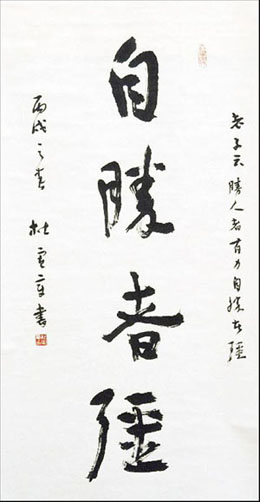 老子云勝人者有力自勝者彊
自勝者彊
丙戌之春
杜
書